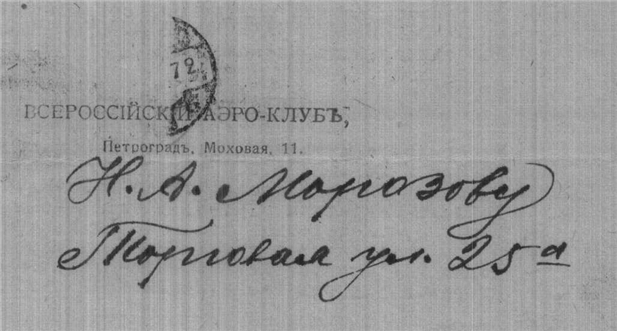 72
ВСЕРОССІЙСКІЙ АЭРО-КЛУБЪ,
Петроградъ, Моховая, 11.
Н. А. Морозову
Торговая ул. 25а